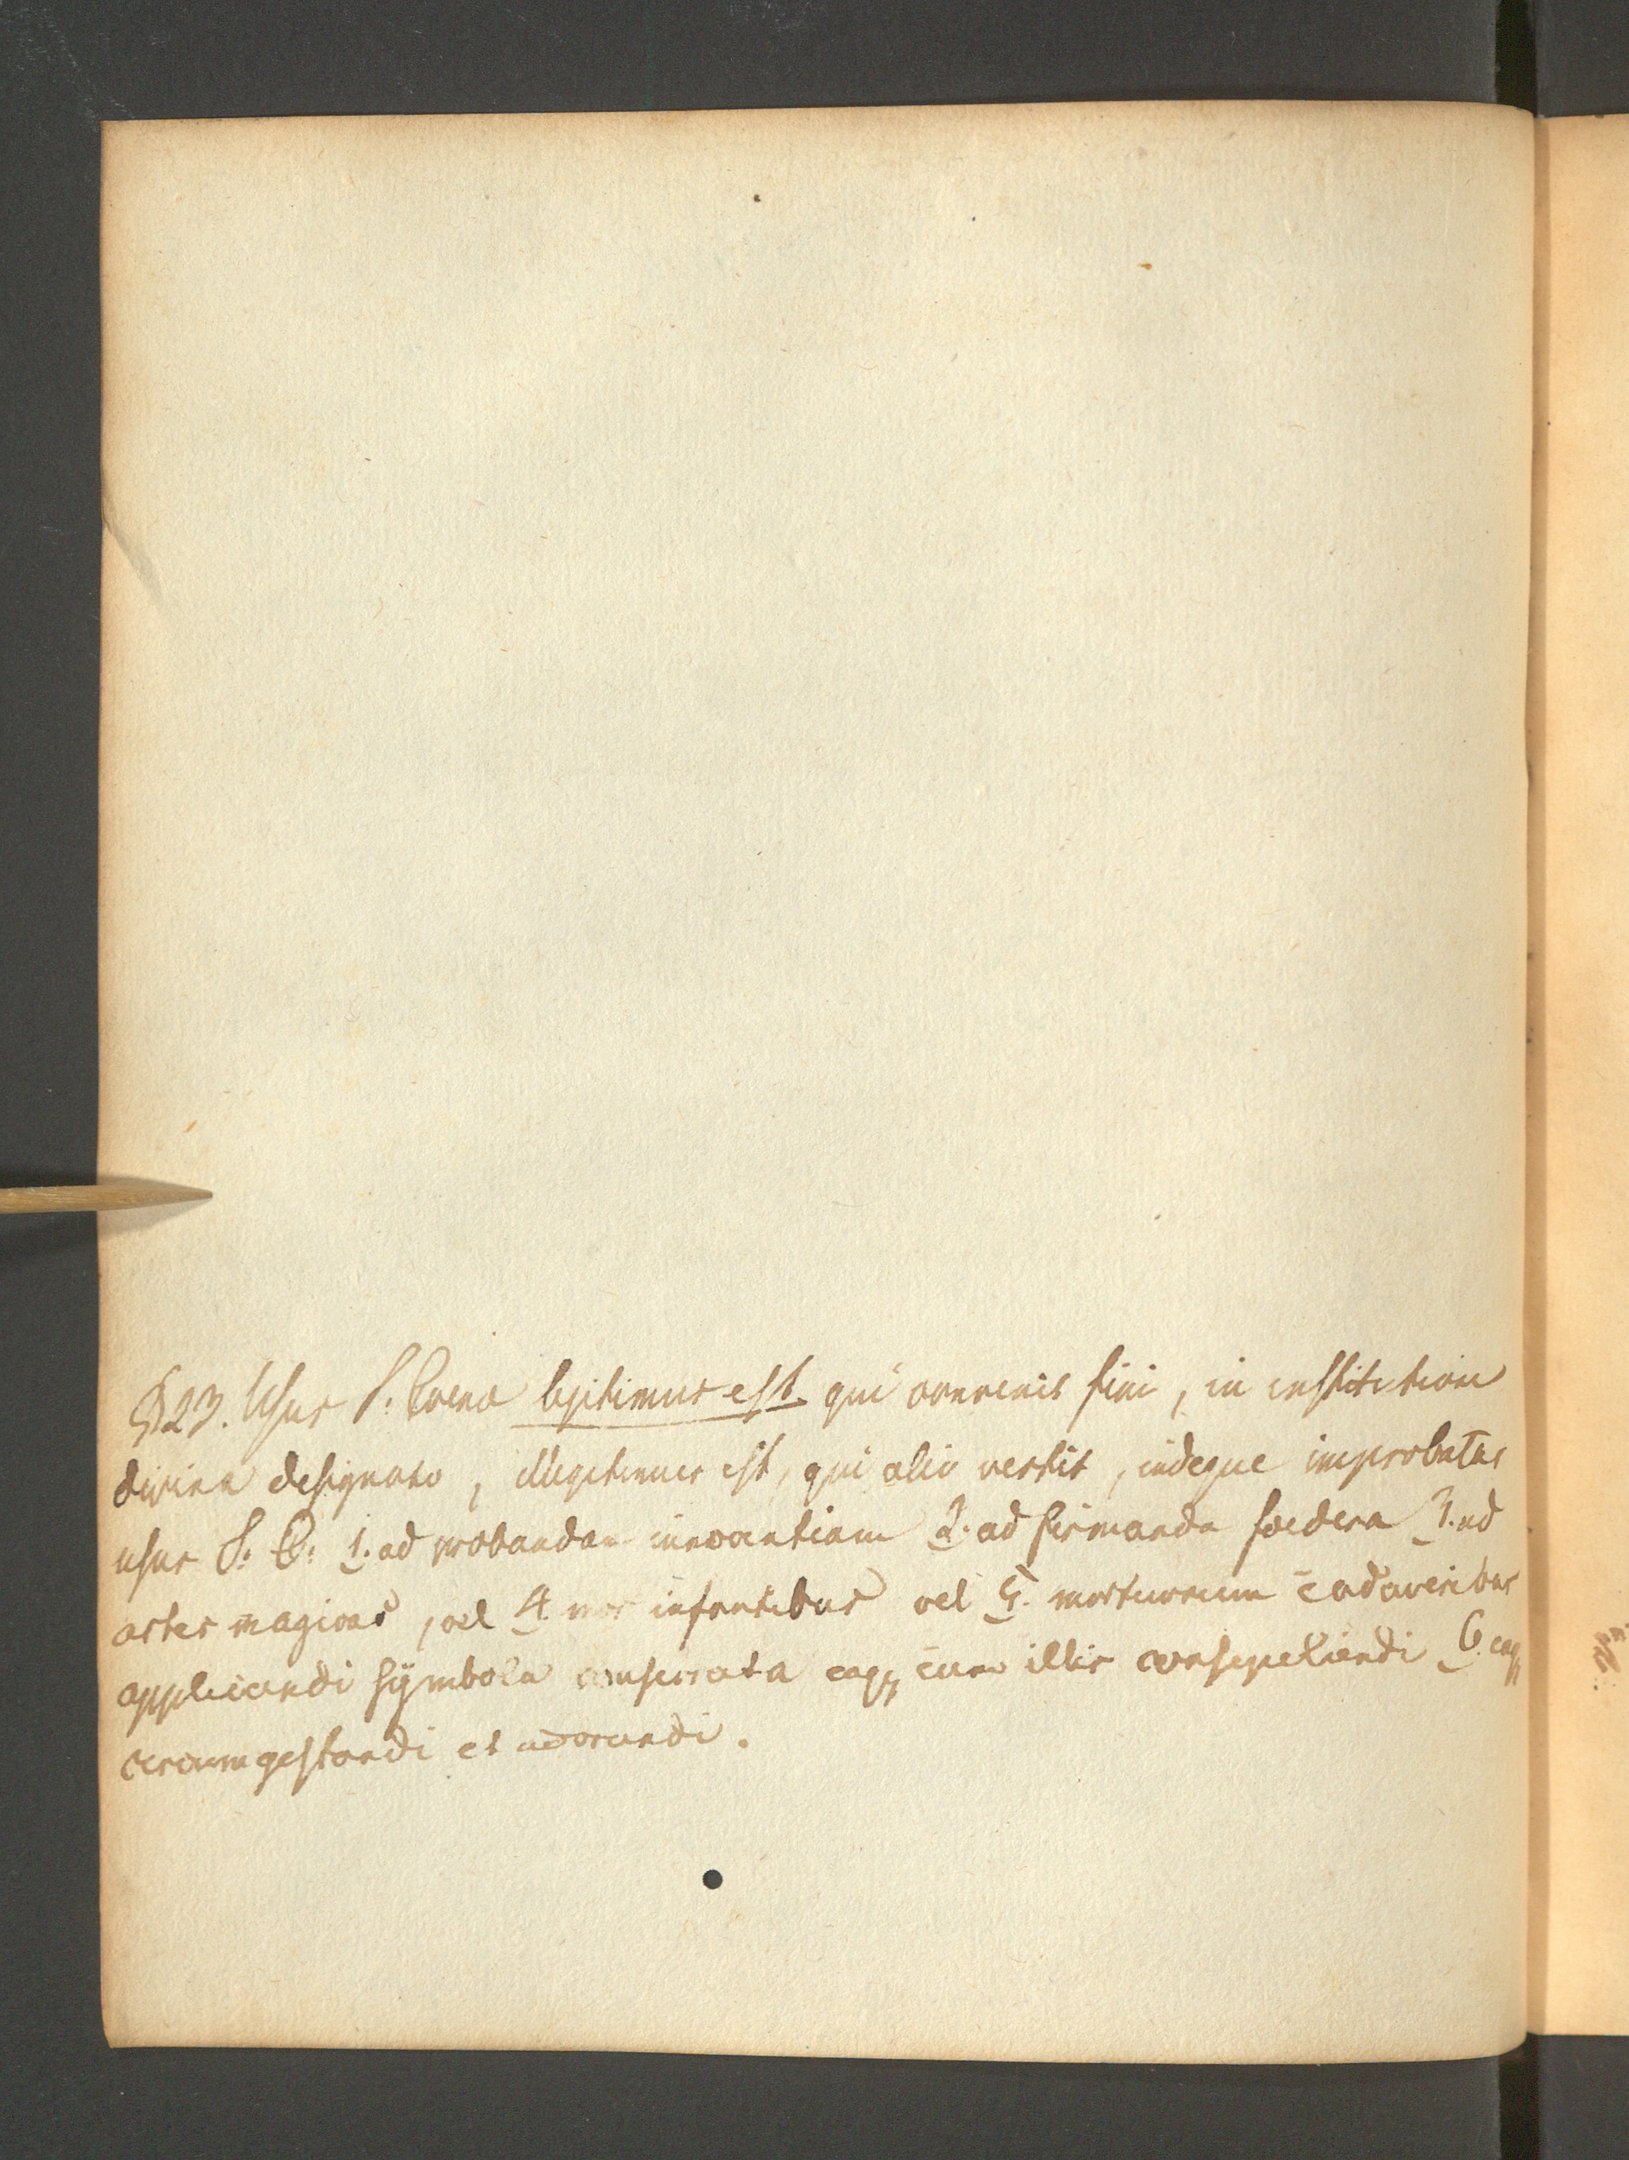 §23. Usus S. Coena legitimus est qui convenit fini, in institutione
divina designato, illegitimus est, qui alio vertit, indeque improbatus
usus S. C: 1. ad probandam innocentiam 2. ad firmanda foedera 3. ad
artes magicas, vel 4. infantibus vel 5. mortuorum cadaveribus
applicandi symbola consecrata eaqȝ cum illis consepeliendi 6. eaqȝ
circumgestandi et adorandi.